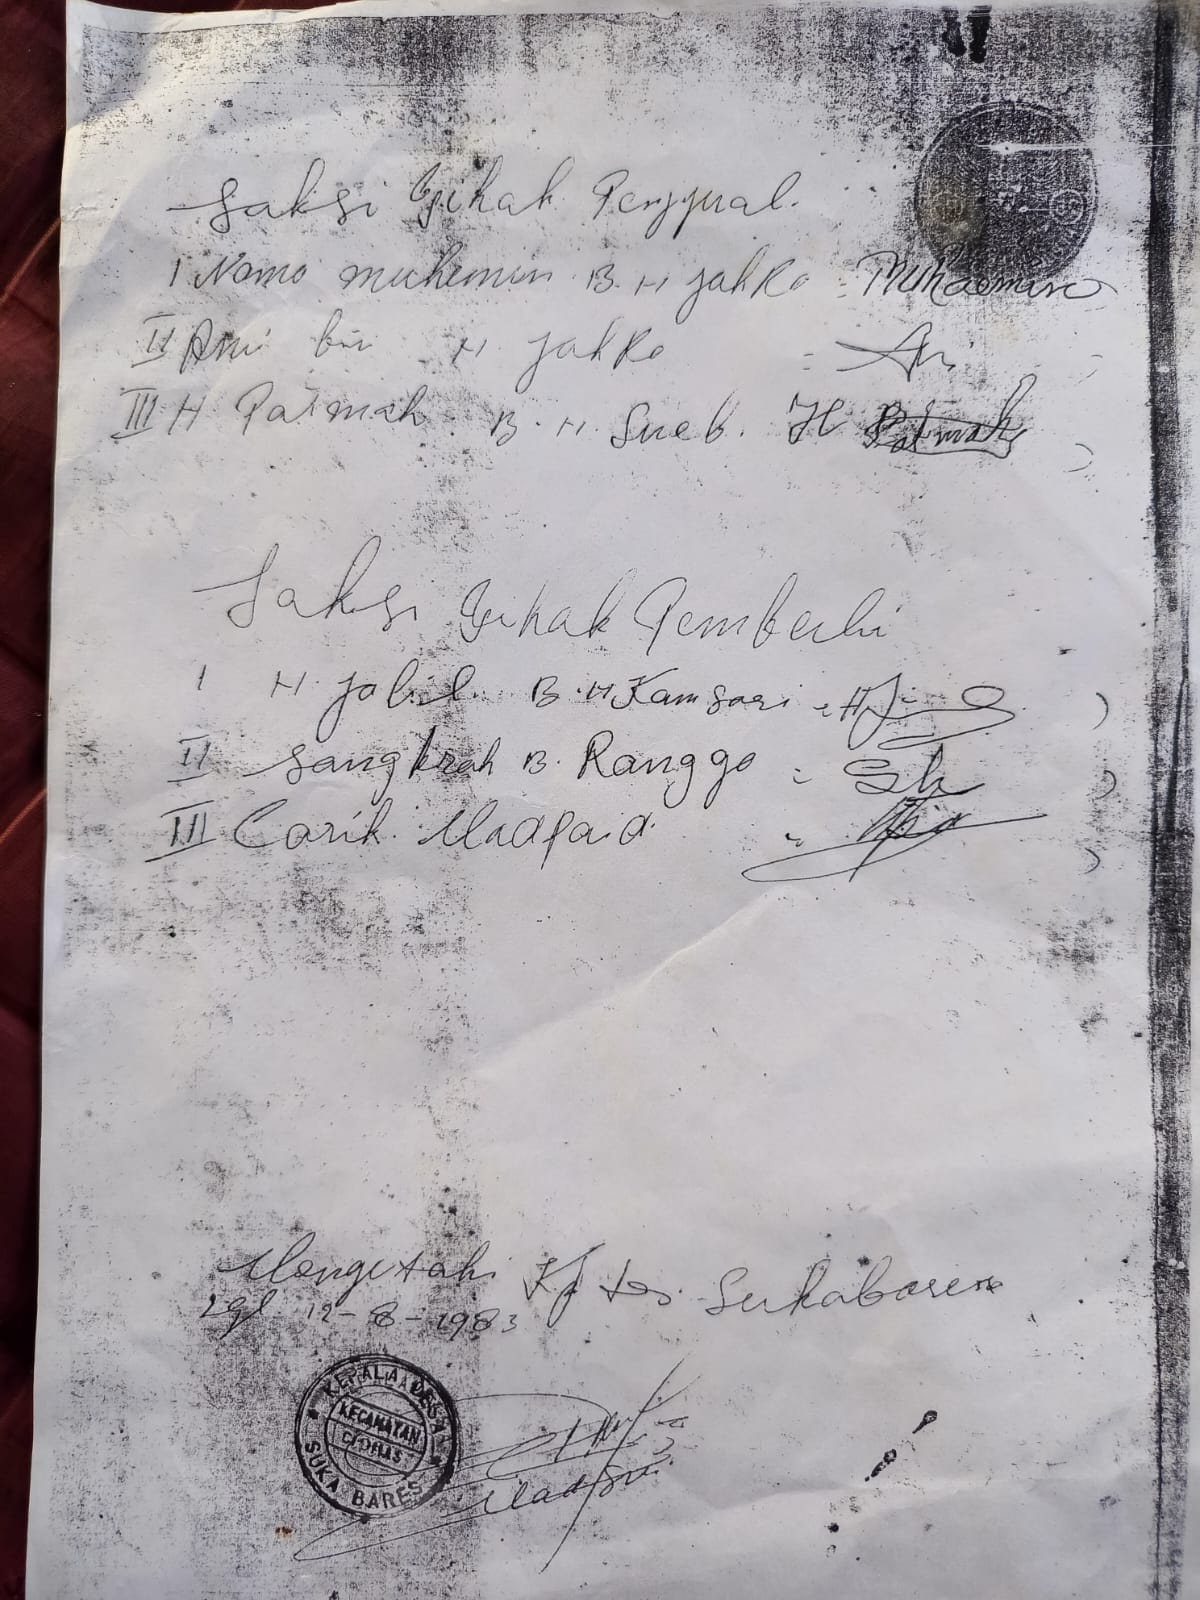 Saksi Pihak Penjual.
I Namo muhemin B. H jahRo = Muhaemin
II Ani bin H jahRo = Ani
III H Patmah B. H. Sueb. H Patmah
Saksi Pihak Pemberli
I H. jabil. B. H Kamsari =
II Sangkrah B. Ranggo =
III Carik. Madsaid
Mengetahi Kp Des. Sukabares
Tgl 12-8-1983
KEPALA DESA
KECAMATAN
CIOMAS
SUKA BARES